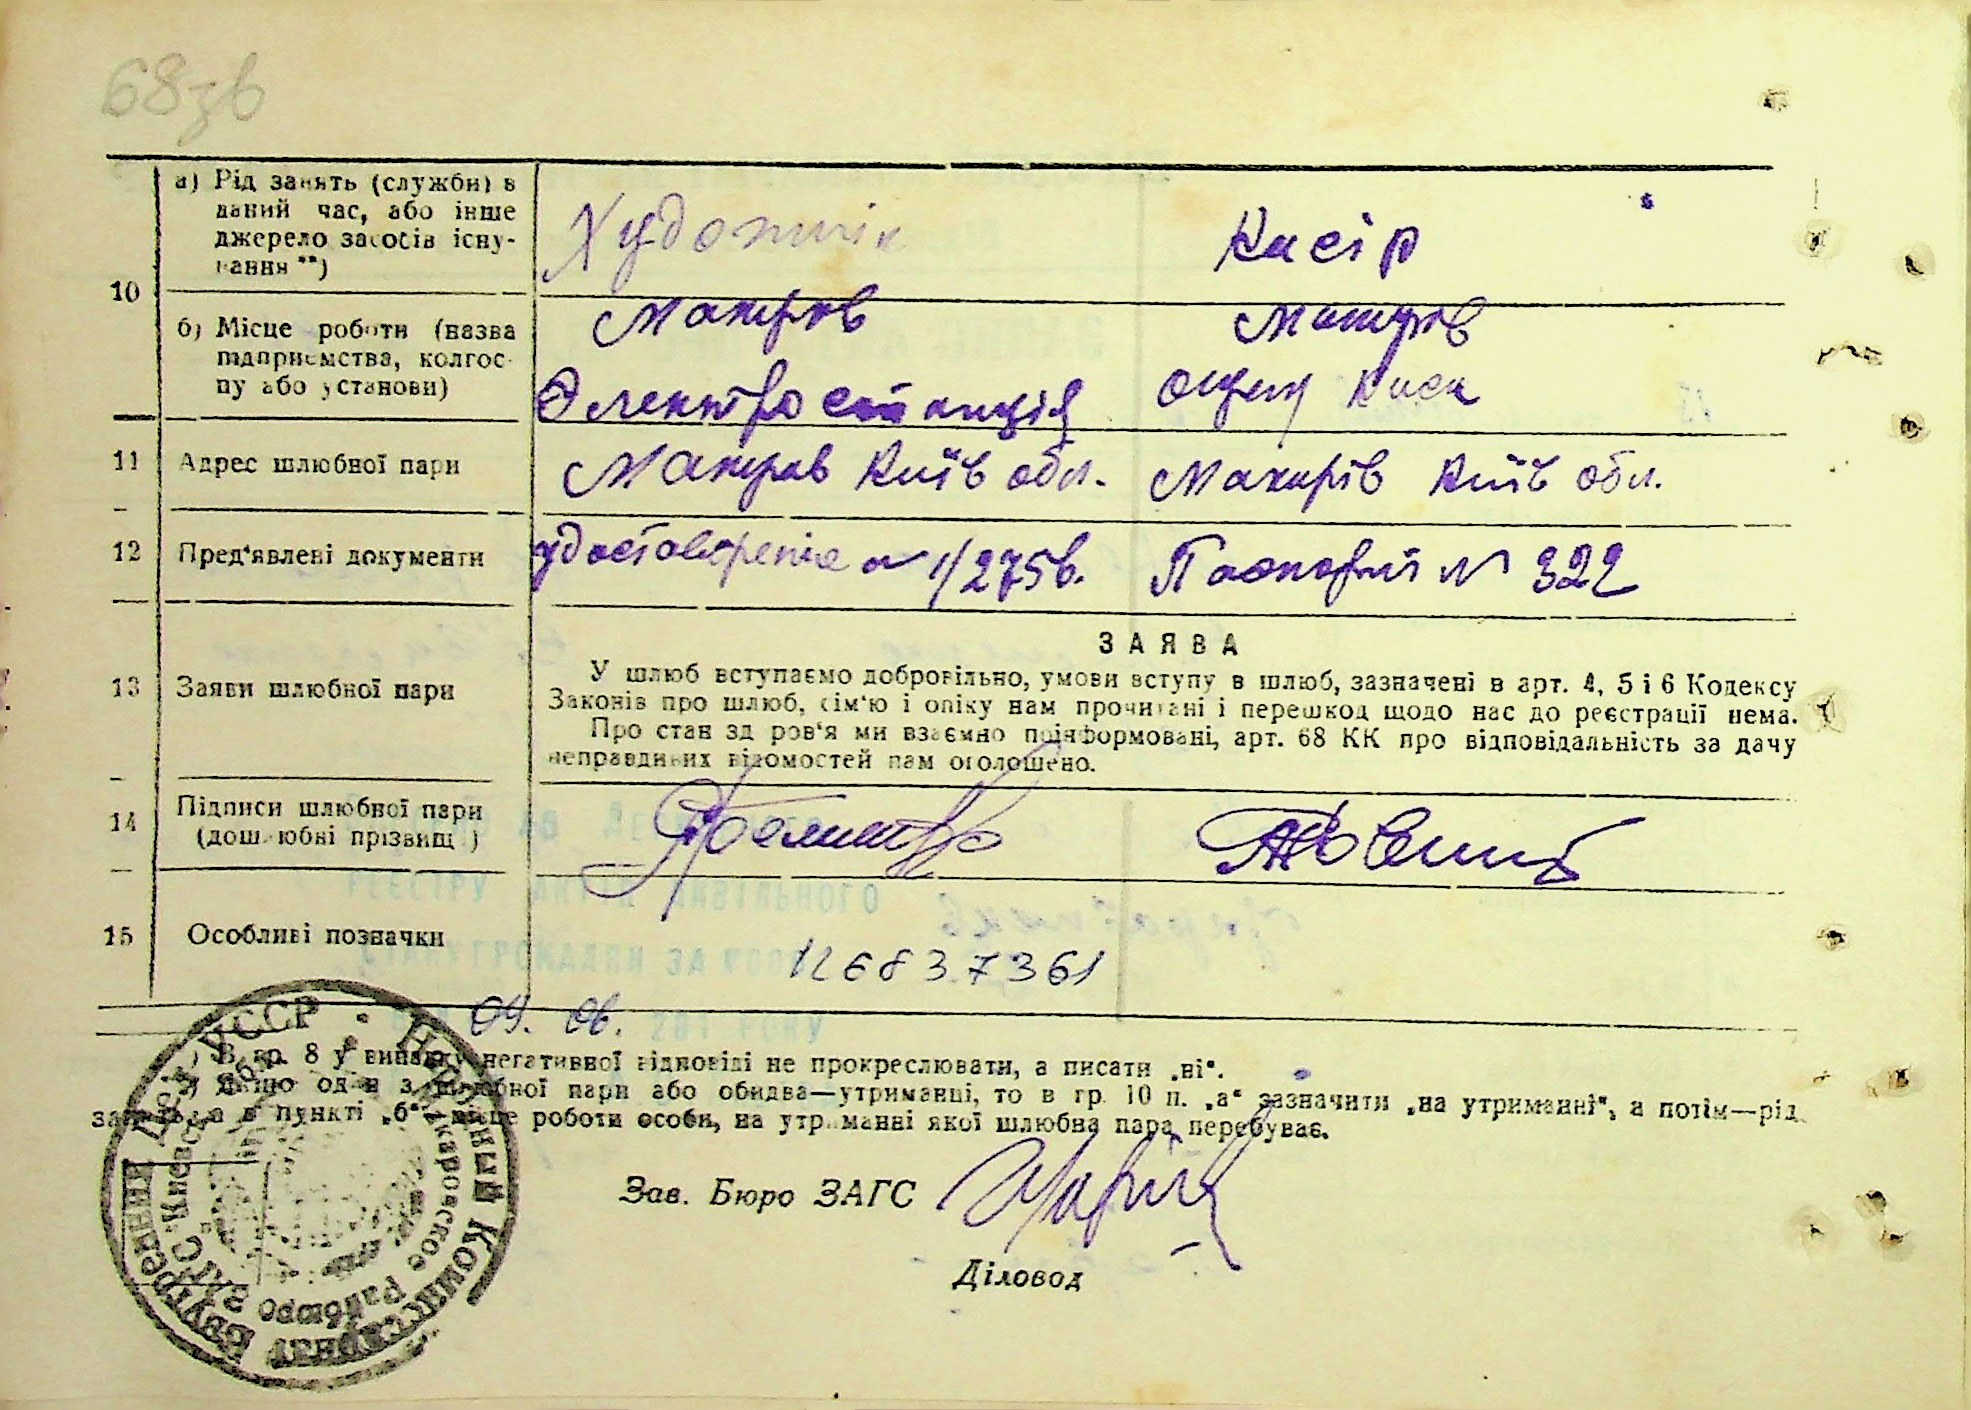 68зв
10
а) Рід занять (служби) в
даний час, або інше
джерело засобів існу-
вання **)
Художнік
Касір
б) Місце роботи (назва
підприємства, колгос-
пу або установи)
Макарів
Електростанція
Макарів
Ощад Каса
11
Адрес шлюбної пари
Макарів Київ обл.
Макарів Київ обл.
12
Пред'явлені документи
удостоверепіє № 1/275в.
Паспорт № 322
13
Заяви шлюбної пари
ЗАЯВА
У шлюб вступаємо добровільно, умови вступу в шлюб, зазначені в арт. 4, 5 і 6 Кодексу
Законів про шлюб, сім'ю і опіку нам прочитані і перешкод щодо нас до реєстрації нема.
Про стан здоров'я ми взаємно поінформовані, арт. 68 КК про відповідальність за дачу
неправдивих відомостей нам оголошено.
14
Підписи шлюбної пари
(дошлюбні прізвищ )
15
Особливі позначки
РЕЄСТРУ АКТІВ ЦИВІЛЬНОГО
СТАНУ ГРОМАДЯН ЗА
12683 7361
09. 06. 201 РОКУ
) В гр. 8 у випадку негативної відповіді не прокреслювати, а писати „ні".
) Якщо один з шлюбної пари або обидва—утриманці, то в гр. 10 п. „а" зазначити „на утриманні", а потім—рід
занять, а в пункті „б" місце роботи особи, на утриманні якої шлюбна пара перебуває.
Зав. Бюро ЗАГС
Діловод
УССР • Народный Комиссариат Внутренних Дел
Макаровское Райбюро ЗАГС Киевской обл.